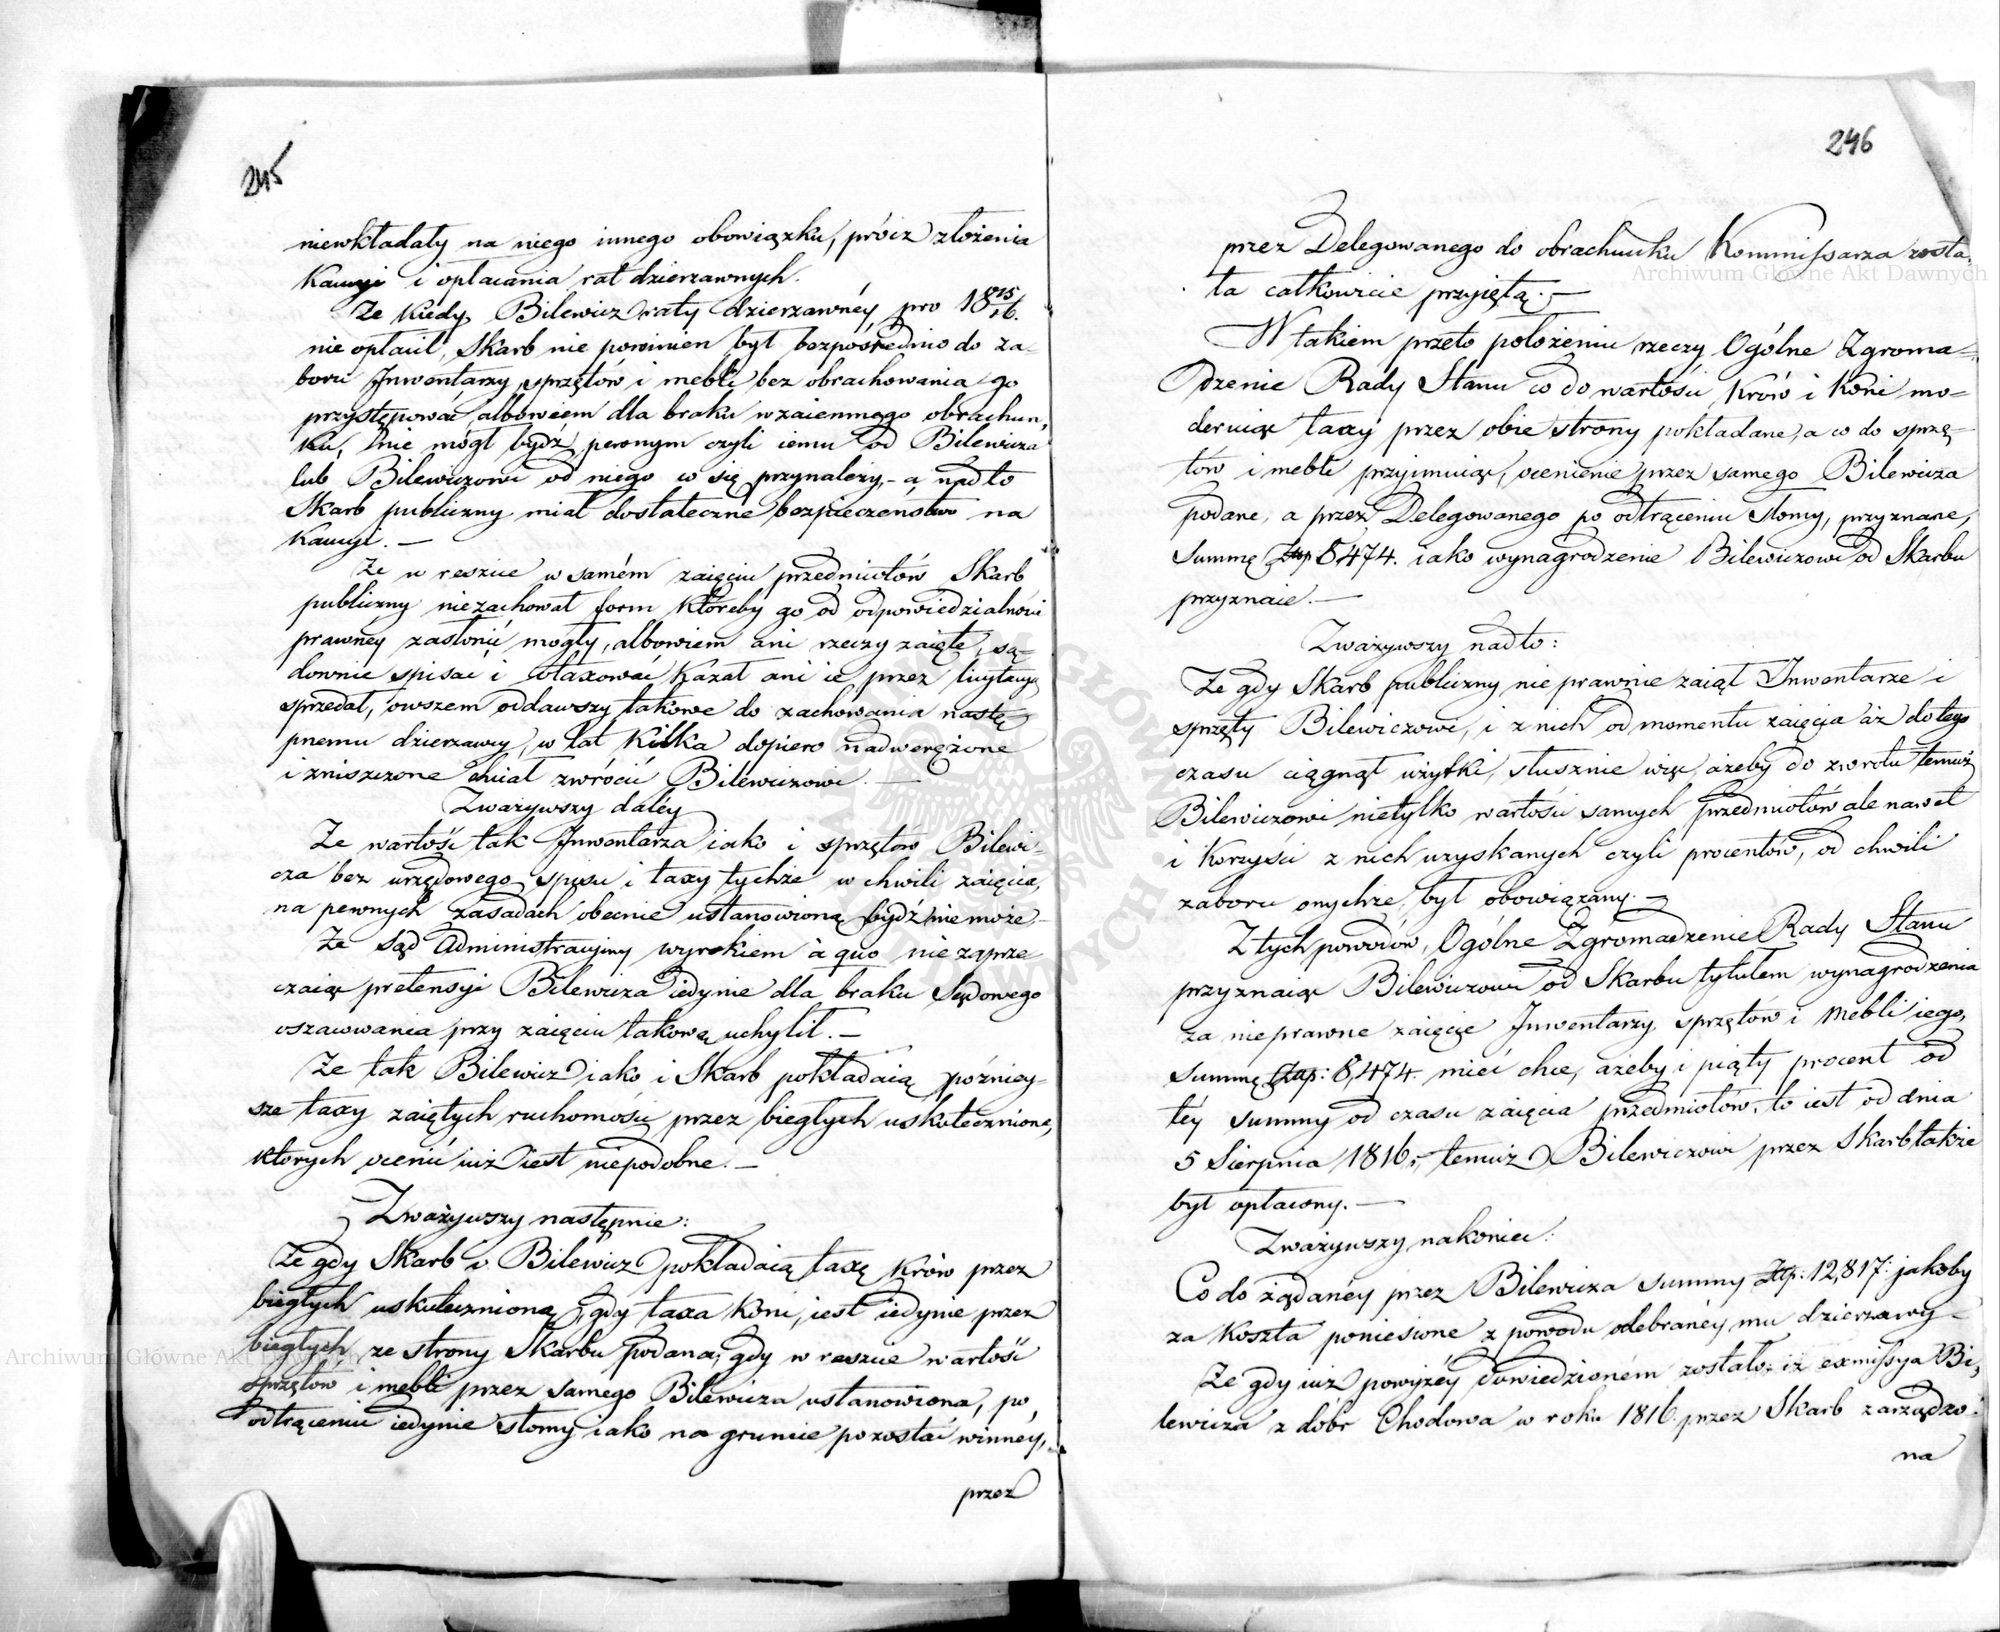 245
niewkładały na niego innego obowiązku, prócz złożenia
Kaucyi i opłacania rat dzierzawnych.
Ze kiedy Bilewicz raty dzierzawnéy pro 18 15/16.
nie opłacił, Skarb nie powinien był bezpośrednio do za-
boru Inwentarzy sprzętów i mebli bez obrachowania go
przystępować, albowiem dla braku wzaiemnego obrachun,
ku, nie mógł bydź pewnym czyli iemu od Bilewicza
lub Bilewiczowi od niego co się przynależy, - a nadto
Skarb publiczny miał dostateczne bezpieczeństwo na
Kaucyi. —
Ze w reszcie w samém zaięciu przedmiotów Skarb
publiczny niezachował form któreby go od odpowiedzialności
prawney zasłonić mogły, albowiem ani rzeczy zaięte, są-
downie spisać i otaxować kazał ani ie przez licytacyą
sprzedał, owszem oddawszy takowe do zachowania nastę-
pnemu dzierzawcy, w lat kilka dopiero nadweręzone
i zniszczone chciał zwrócić Bilewiczowi. —
Zważywszy daléy
Ze wartość tak Inwentarza iako i sprzętów Bilewi-
cza bez urzędowego spisu i taxy tychże w chwili zaięcia,
na pewnych zasadach obecnie ustanowioną bydź nie może. -
Ze Sąd Administracyiny wyrokiem à quo nie zaprze
czaiąc pretensyi Bilewicza iedynie dla braku Sądowego
oszacowania przy zaięciu takową uchylił. —
Ze tak Bilewicz iako i Skarb pokładaią późniey-
sze taxy zaiętych ruchomości przez biegłych uskutecznione,
których ocenić iuż iest niepodobne. —
Zważywszy następnie:
Ze gdy Skarb i Bilewicz pokładaią taxę krów przez
biegłych uskutecznioną, gdy taxa koni, iest iedynie przez
biegłych ze strony Skarbu podana, gdy w reszcie wartość
sprzętów i mebli przez samego Bilewicza ustanowiona, po
odtrąceniu iedynie słomy iako na gruncie pozostać winnéy,
przez
246
przez Delegowanego do obrachunku Kommissarza zosta,
ła całkowicie przyiętą. —
W takiem przeto położeniu rzeczy Ogólne Zgroma-
dzenie Rady Stanu co do wartości krów i koni mo-
deruiąc taxy przez obie strony pokładane, a co do sprzę-
tów i mebli przyimuiąc, ocenienie przez samego Bilewicza
podane, a przez Delegowanego po odtrąceniu słomy, przyznane,
Summę Złp 8,474. iako wynagrodzenie Bilewiczowi od Skarbu
przyznaie. —
Zważywszy nadto:
Ze gdy Skarb publiczny nieprawnie zaiął Inwentarze i
sprzęty Bilewiczowi, i z nich od momentu zaięcia aż do tego
czasu ciągnął użytki, słusznie więc ażeby do zwrotu temuż
Bilewiczowi nietylko wartości samych przedmiotów ale nawet
i korzyści z nich uzyskanych czyli procentów, od chwili
zaboru onychże, był obowiązany. —
Z tych powodów, Ogólne Zgromadzenie Rady Stanu
przyznaiąc Bilewiczowi od Skarbu tytułem wynagrodzenia
za nieprawne zaięcie Inwentarzy, sprzętów i mebli iego,
summę Złp: 8,474. mieć chce, ażeby i piąty procent od
téy summy od czasu zaięcia przedmiotów, to iest od dnia
5 Sierpnia 1816 r. temuż Bilewiczowi przez Skarb także
był opłacony. —
Zważywszy nakoniec:
Co do żądanéy przez Bilewicza summy Złp: 12,817: jakoby
za koszta poniesione z powodu odebranéy mu dzierzawy —
Ze gdy iuż powyżéy dowiedzioném zostało, iż exmissya Bi,
lewicza z dóbr Chodowa w roku 1816. przez Skarb zarządzo-
na
Archiwum Główne Akt Dawnych
Archiwum Główne Akt Dawnych